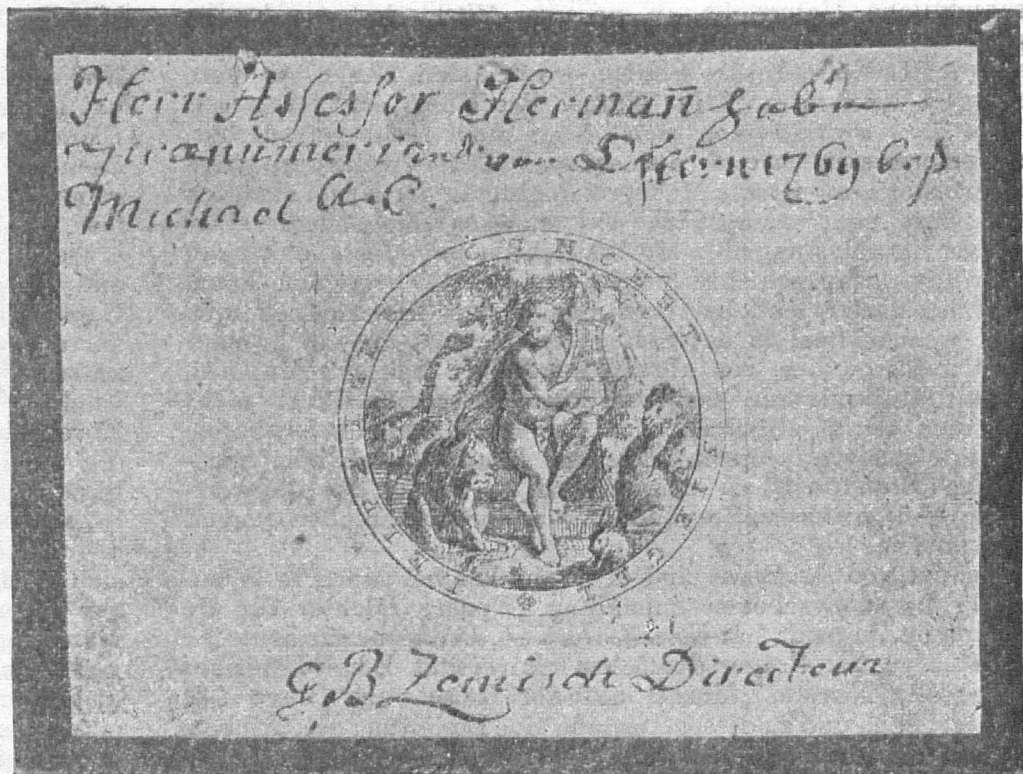 Herr Assessor Hermañ haben
prænumerirt von Ostern 1769 biß
Michael a. c.
LEIPZIGER CONCERT SIEGEL
G B Zemisch Directeur